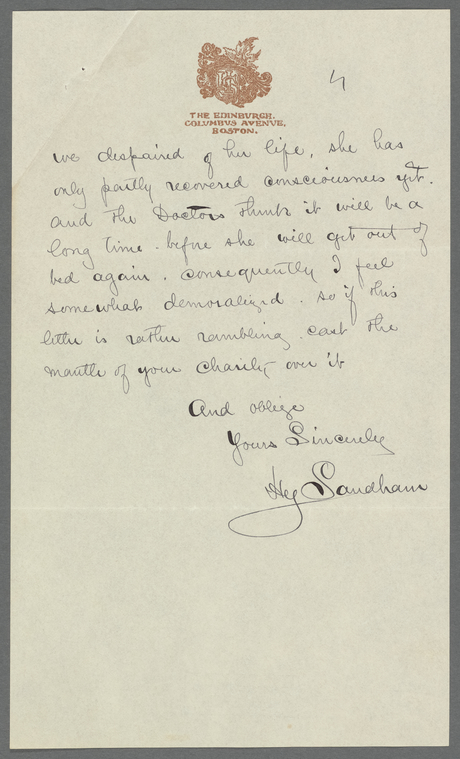 4
THE EDINBURGH.
COLUMBUS AVENUE.
BOSTON.
we despaired of her life, she has
only partly recovered consciousness yet.
and the Doctors think it will be a
long time. before she will get out of
bed again. consequently I feel
somewhat demoralized. so if this
letter is rather rambling. cast the
mantle of your charity over it
And oblige
Yours Sincerely
Hy Sandham